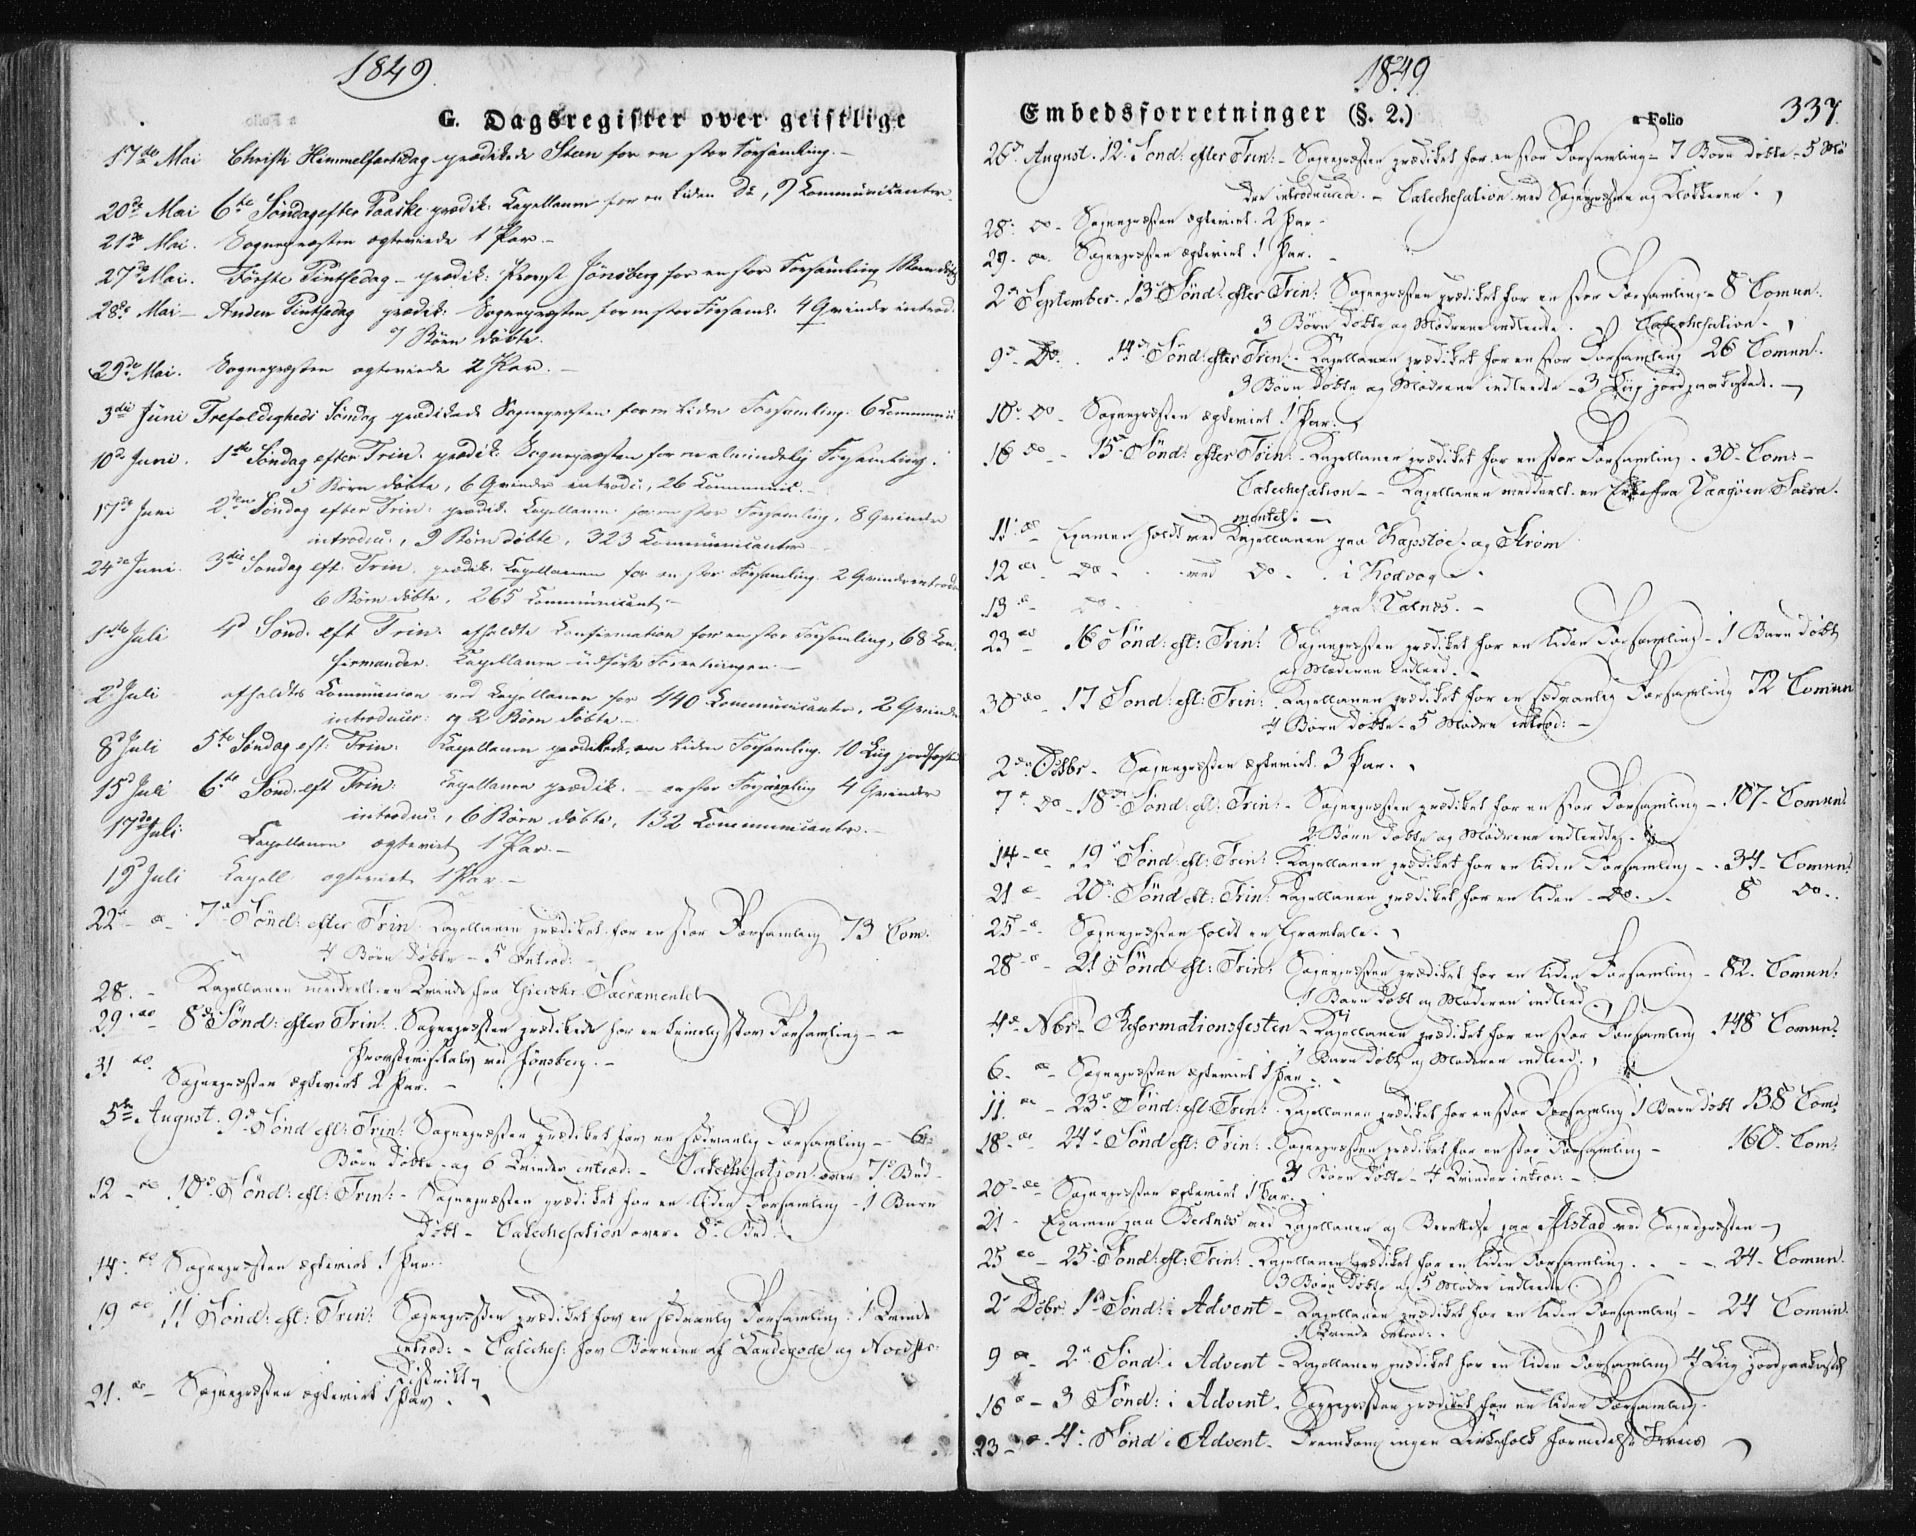 1849.
G. Dagsregister over geistlige
17de Mai Christi Himmelfartsdag prædikede Steen for en stor Forsamling.
20de Mai 6te Søndag efter Paaske prædik: Capellanen for en liden Do, 9 Kommunicanter.
21de Mai. Sognepræsten ægteviede 1 Par.
27de Mai. Første Pintsedag - prædik: Provst Jønsberg for en stor Forsamling 1 Barn døbt
28de Mai - Anden Pintsedag prædik: Sognepræsten for en stor Forsaml: 4 Qvinder introd.
7 Børn døbte.
29de Mai. Sognepræsten ægteviede 2 Par.
3die Juni Trefoldigheds Søndag prædikede Sognepræsten for en liden Forsamling. 6 Communi
10de Juni. 1ste Søndag efter Trin. prædik: Sognepræsten for en almindelig Forsamling.
5 Børn døbte, 6 Qvinder introdu:, 26 Communic.
17de Juni 2den Søndag efter Trin: prædik. Capellanen for en stor Forsamling, 8 Qvinder
introdu:, 9 Børn døbte, 323 Kommunicanter
24de Juni. 3die Søndag eft. Trin. prædik. Capellanen for en stor Forsamling. 2 Qvinder introd
6 Børn døbte, 265 Kommunicant.
1ste Juli 4d Sønd. eft Trin. afholdte Confirmation for en stor Forsamling, 68 Con-
firmander. Capellanen udførte Forretningen.
2d Juli afholdtes Communion ved Capellanen for 440 Kommunicanter, 2 Qvinder
introducer: og 2 Børn døbte
8d Juli 5te Søndag eft: Trin: Capellanen prædikede en liden Forsamling. 10 Liig jordfæstede
15d Juli 6te Sønd. eft Trin: Capellanen prædik. en stor Forsamling 4 Qvinder
introdu:, 6 Børn døbte, 132 Communicanter.
17de Juli Capellanen ægteviet 1 Par.
19d Juli Capell. ægteviet 1 Par.
22d do 7d Sønd: efter Trin. Capellanen prædiket for en stor Forsamling 73 Com.
4 Børn døbte - 5 Introd:
28. Kapellanen meddeelt en Qvinde fra Sacramentet
29 do 8de Sønd: efter Trin: Sognepræsten prædikede for en temelig stor Forsamling
Provstevisitats ved Jønsberg.
31 do. Sognepræsten ægteviet 2 Par.
5te August. 9d Sønd eft: Trin: Sognepræsten prædiket for en sædvanlig Forsamling - 6
Børn døbte og 6 Qvinder introd: - Catechesation over 7d Bud
12 do 10d Sønd: eft: Trin: - Sognepræsten prædiket for en liden Forsamling - 1 Barn
døbt - Catechesation over 8d Bud.
14 do Sognepræsten ægteviet 1 Par.
19 do 11 Sønd: eft: Trin: Sognepræsten prædiket for en sædvanlig Forsamling. 1 Qvinde
introd: - Cateches: for Børnene af Landegode og
District
21. do Sognepræsten ægteviet 1 Par.
1849.
Embedsforretninger (§. 2.)
a Folio
337.
26d August. 12d Sønd: efter Trin: - Sognepræsten prædiket for en stor Forsamling - 7 Børn døbte - 5 Mø
dre introducered. - Catechesation ved Sognepræsten og Klokkeren.
28. do Sognepræsten ægteviet. 2 Par
29. do. Sognepræsten ægteviet 1 Par.
2d September. 13d Sønd: efter Trin: Sognepræsten prædiket for en stor Forsamling - 8 Comun:
3 Børn døbte og Mødrene indledte. Catechesation.
9d Do. 14d Sønd: efter Trin: Kapellanen prædiket for en stor Forsamling 26 Comun:
3 Børn døbte og Mødrene indledte - 3 Liig jordpaakastede.
10d do Sognepræsten ægteviet 1 Par.
16 do - 15d Sønd: efter Trin: - Kapellanen prædiket for en stor Forsamling - 30 Com:
Catechesation - Kapellanen meddeelt en fra Vaagøen Sacra-
mentet.
11. do Examen holdt ved Kapellanen paa Kapstøe og Strøm
12 do do med do i Kodvog
13 do do paa Valnæs.
23 do 16 Sønd: eft: Trin: Sognepræsten prædiket for en liden Forsamling - 1 Barn døbt
og Moderen indled.
30 do 17 Sønd: eft: Trin: Kapellanen prædiket for en sædvanlig Forsamling 72 Comun
4 Børn døbte - 5 Mødre introd:
2den Octbr. Sognepræsten ægteviet 3 Par.
7d do 18d Sønd: eft: Trin: - Sognepræsten prædiket for en stor Forsamling - 107 Comun:
2 Børn døbte og Mødrene indledte.
14 do 19d Sønd: eft: Trin: Kapellanen prædiket for en liden Forsamling - 34 Comun:
21 d 20d Sønd eft: Trin: Kapellanen prædiket for en liden - do. 8 do.
25 d Sognepræsten holdt en Gravtale.
28 d 21 Sønd eft: Trin: Sognepræsten prædiket for en liden Forsamling - 82. Comun:
1 Barn døbt og Moderen indled
4d Nbr. Reformationsfesten - Kapellanen prædiket for en stor Forsamling 148 Comun:
1 Barn døbt og Moderen indled:
6. do Sognepræsten ægteviet 1 Par.
11. do - 23d Sønd: eft: Trin: Kapellanen prædiket for en stor Forsamling 1 Barn døbt 138 Com:
18 do 24d Sønd eft: Trin: Sognepræsten prædiket for en stor Forsamling - 160 Com:
4 Børn døbte - 4 Qvinder introd:
20 do Sognepræsten ægteviet 1 Par.
21 Examen paa Bertnæs ved Kapellanen og Berettelse paa Alstad ved Sognepræsten
25 do 25d Sønd: eft: Trin: Kapellanen prædiket for en liden Forsamling. - 24 Comun.
3 Børn døbte og 5 Mødre indledte
2d Dcbr. 1d Sønd: i Advent - Kapellanen prædiket for en liden Forsamling - 24 Comun.
1 Qvinde introd:
9 do 2d Sønd: i Advent - Kapellanen prædiket for en liden Forsamling 4 Liig jordpaakastet
16 d - 3 Sønd: i Advent. Sognepræsten prædiket for en liden Forsamling.
23 d. 4d Sønd i Advent. Fremkom ingen Kirkefolk formedelst